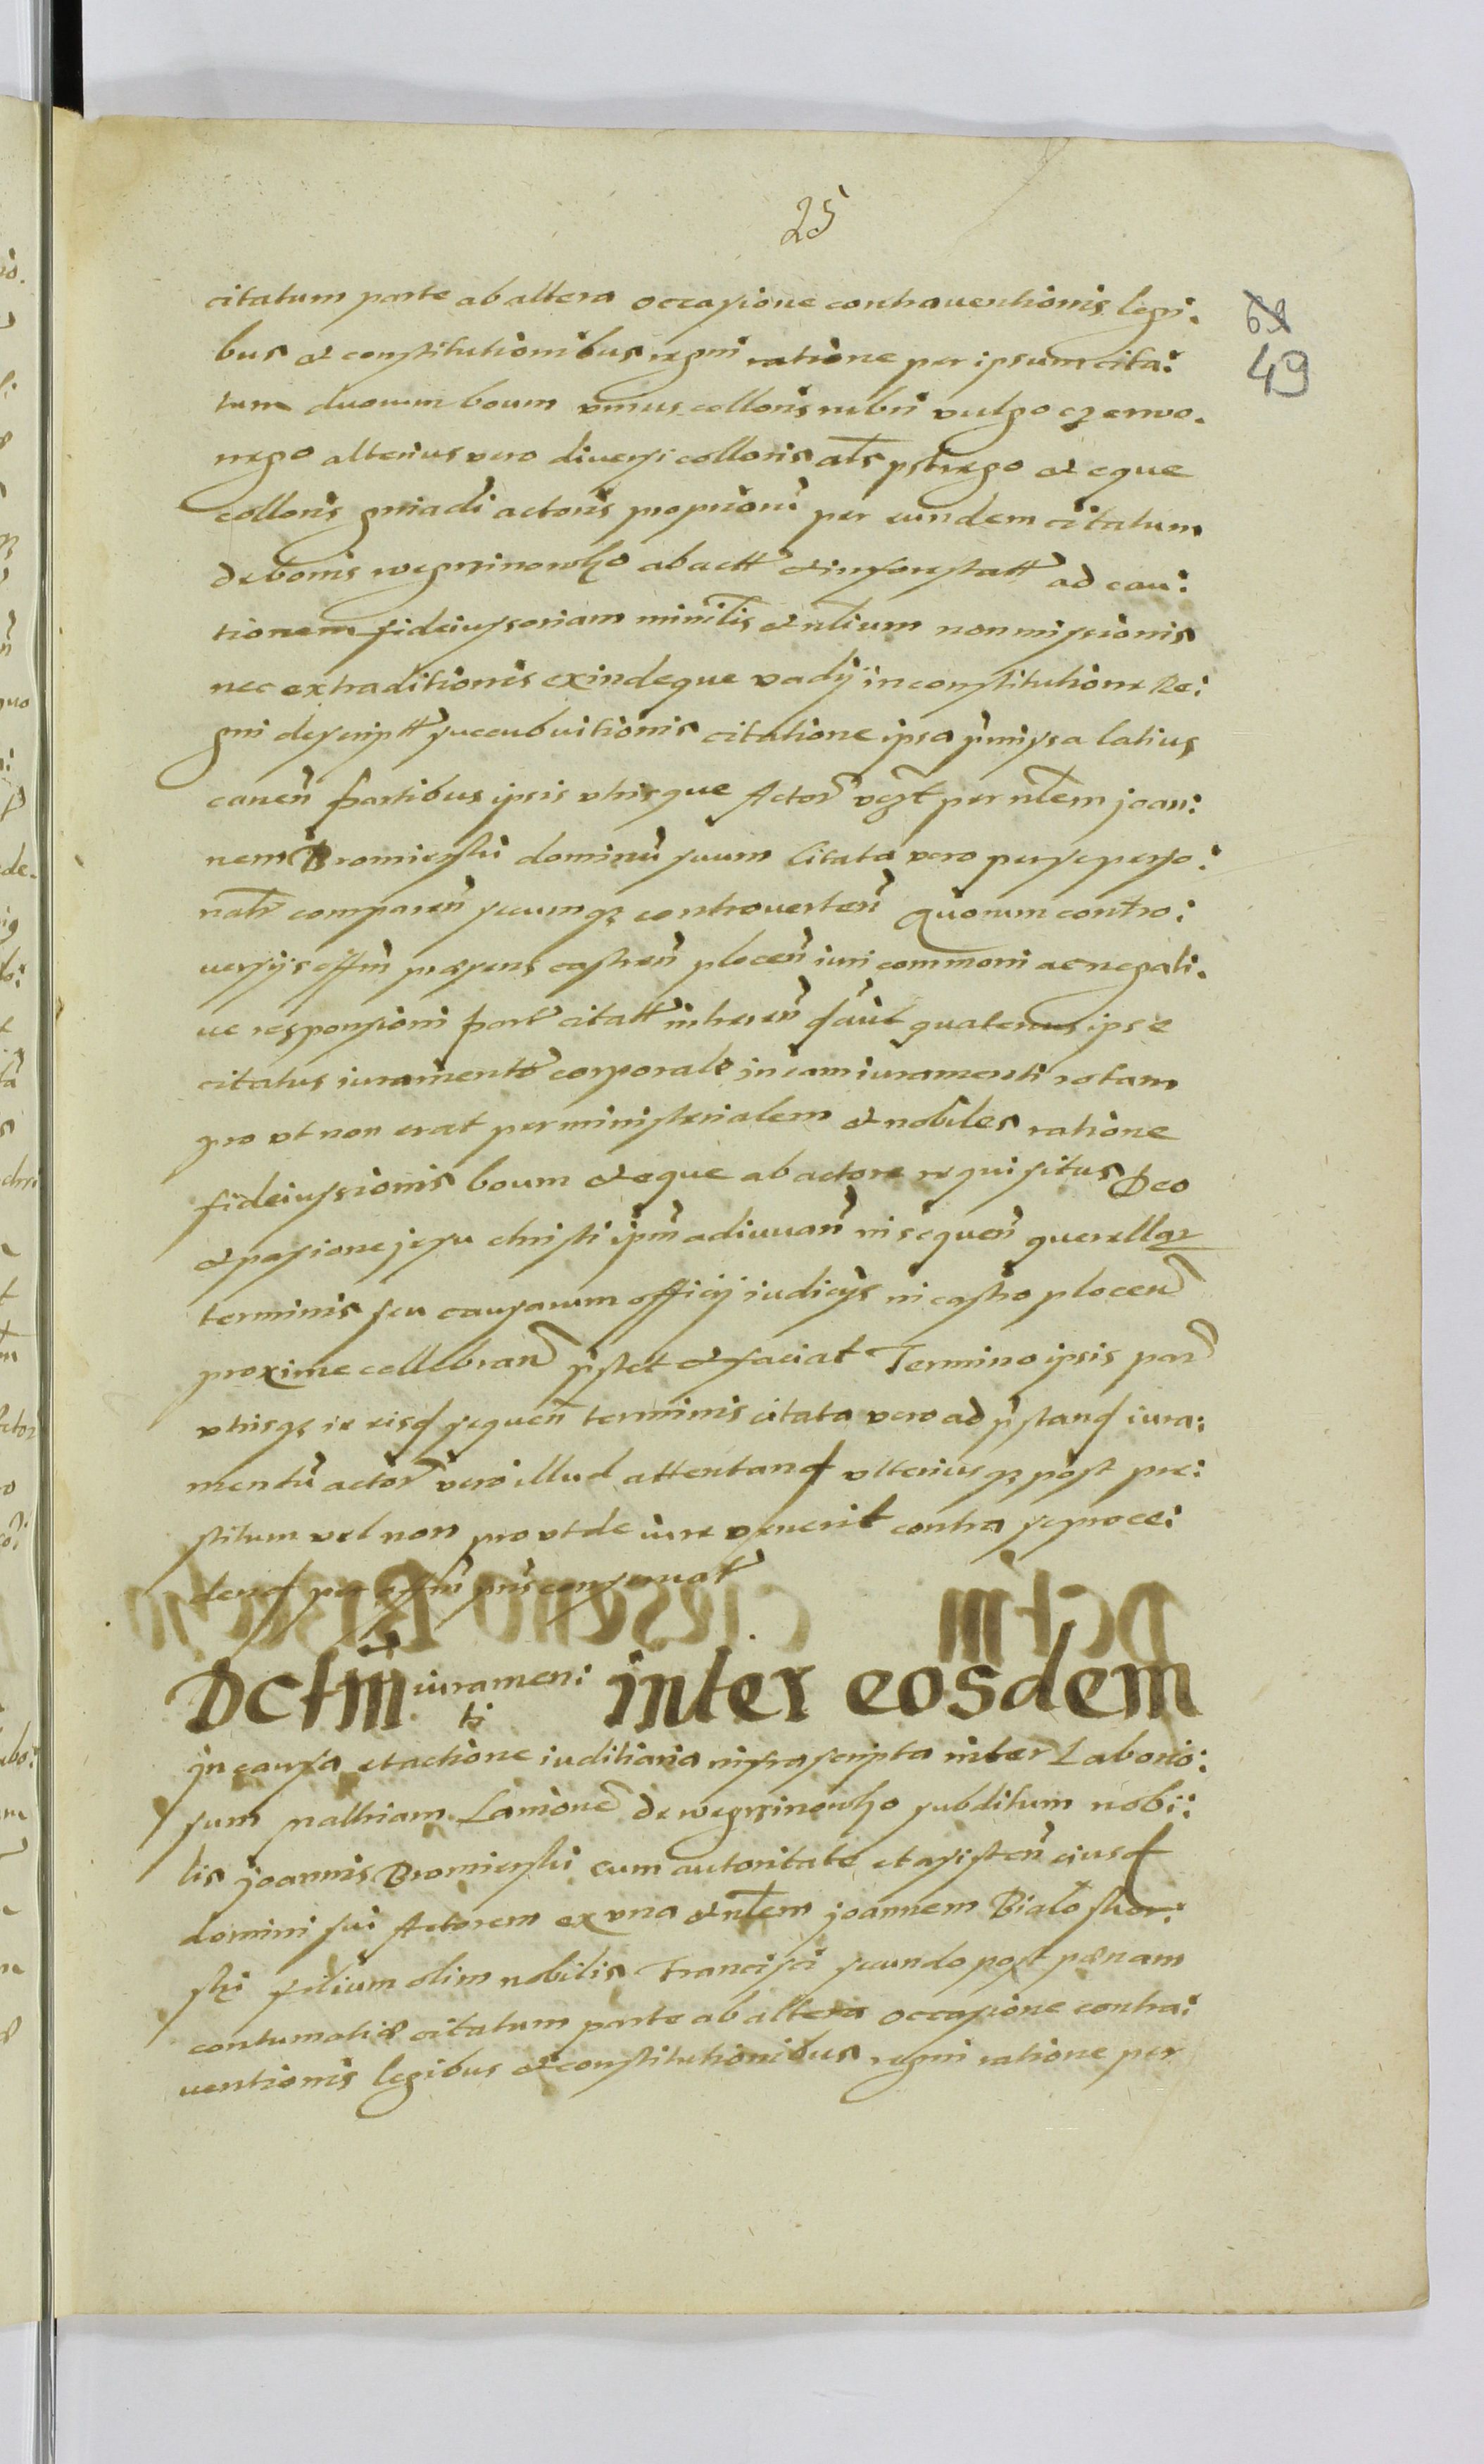 25
69
49
citatum parte ab altera occasione contrauentionis legi:
bus et constitutionibus regni ratione per ipsum cita:
tum duorum boum vnius colloris rubri vulgo czerwo.
nego alterius vero diuersi colloris als pstrego et eque
colloris gniadi actoris propriorū per eundem citatum
de bonis wegrzinowsko abactt et inforestatt ad cau:
tionem fideiussoriam minilis et nlium non missionis
nec extraditionis exindeque vadij in constitutione Re:
gni descriptt succubuitionis citatione ipsa pmissa latius
canen̄ partibus ipsis vtrisque Actor̄ vgt per nlem joan:
nem Bromierski dominū suum Citata vero per se perso:
natr comparen̄ secumqz controuerten̄ Quorum contro:
uersijs offm praesens castren̄ plocen̄ iuri commoni ac negati:
ue responsioni part citatt inheren̄ quatenus ipse
citatus iuramento corporale in eam iuramenti rotam
pro vt non erat per ministerialem et nobiles ratione
fideiussionis boum et eque ab actore requisitus Deo
et pasione jesu christi ipm̄ adiuuan̄ in sequen̄ querellar
terminis seu causarum officij iudicijs in castro plocen̄
proxime cellebran̄ pstet et faciat Termino ipsis par̄
vtrisqz in eisd sequen̄ terminis citata vero ad pstand iura:
mentū actor̄ vero illud attentand vlteriusqz post pre:
stitum vel non pro vt de iure venerit contra se proce:
dend per offm pns conseruatr
Dctm iuramen:
ti inter eosdem
jn causa et actione iuditiaria infrascripta inter Laborio:
sum mathiam Lanione de wegrzinowsko subditum nobi:
lis joannis Bromierski cum autoritate et asisten̄ eiusd
domini sui Actorem ex vna et nlem joannem Białoskor:
ski filium olim nobilis Francisci secundo post paenam
contumatiae citatum parte ab altera occasione contra:
uentionis legibus et constitutionibus regni ratione per